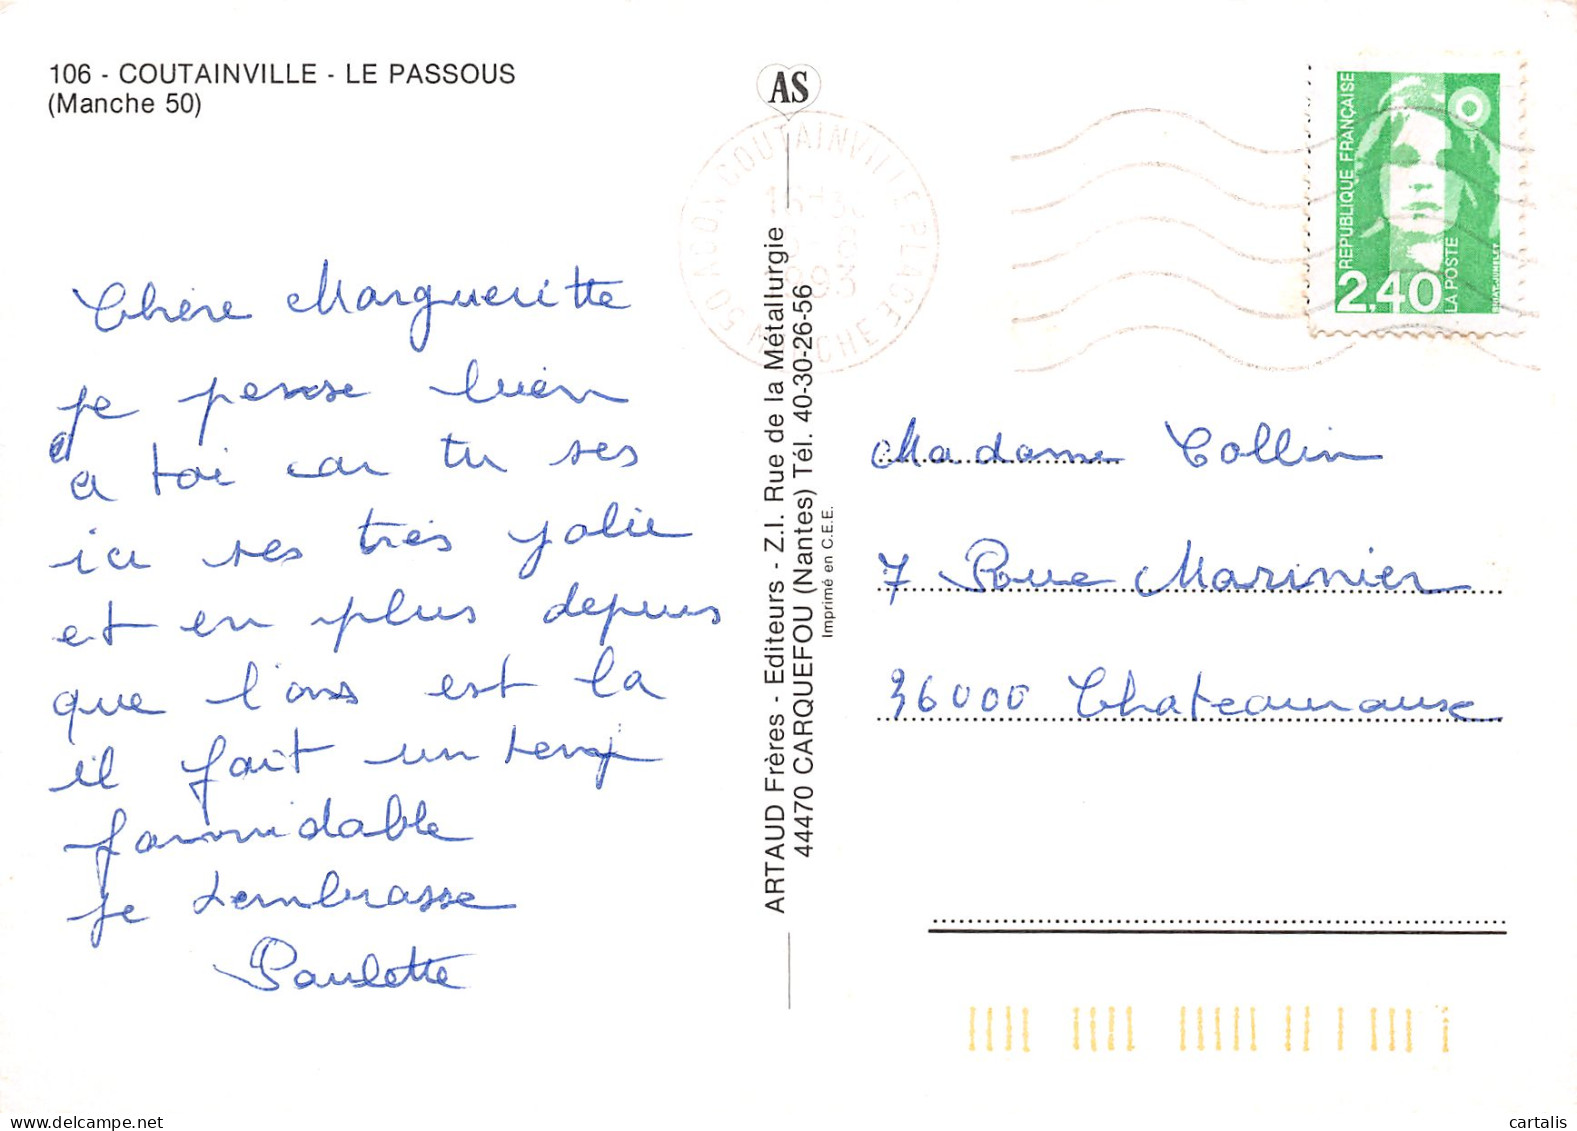 106 - COUTAINVILLE - LE PASSOUS
(Manche 50)
Chère Margueritte
je pense bien
a toi car tu ses
ici ses très jolie
et en plus depuis
que l'ons est la
il fait un temp
formidable
je tembrasse
Paulette
AS
ARTAUD Frères - Editeurs - Z.I. Rue de la Métallurgie
44470 CARQUEFOU (Nantes) Tél. 40-30-26-56
Imprimé en C.E.E.
50 AGON COUTAINVILLE PLAGE
MANCHE
1993
REPUBLIQUE FRANÇAISE
2,40
LA POSTE
BRIAT-JUMELET
Madame Collin
7 Roue Marinier
36000 Chateauroux
cartalis
delcampe.net